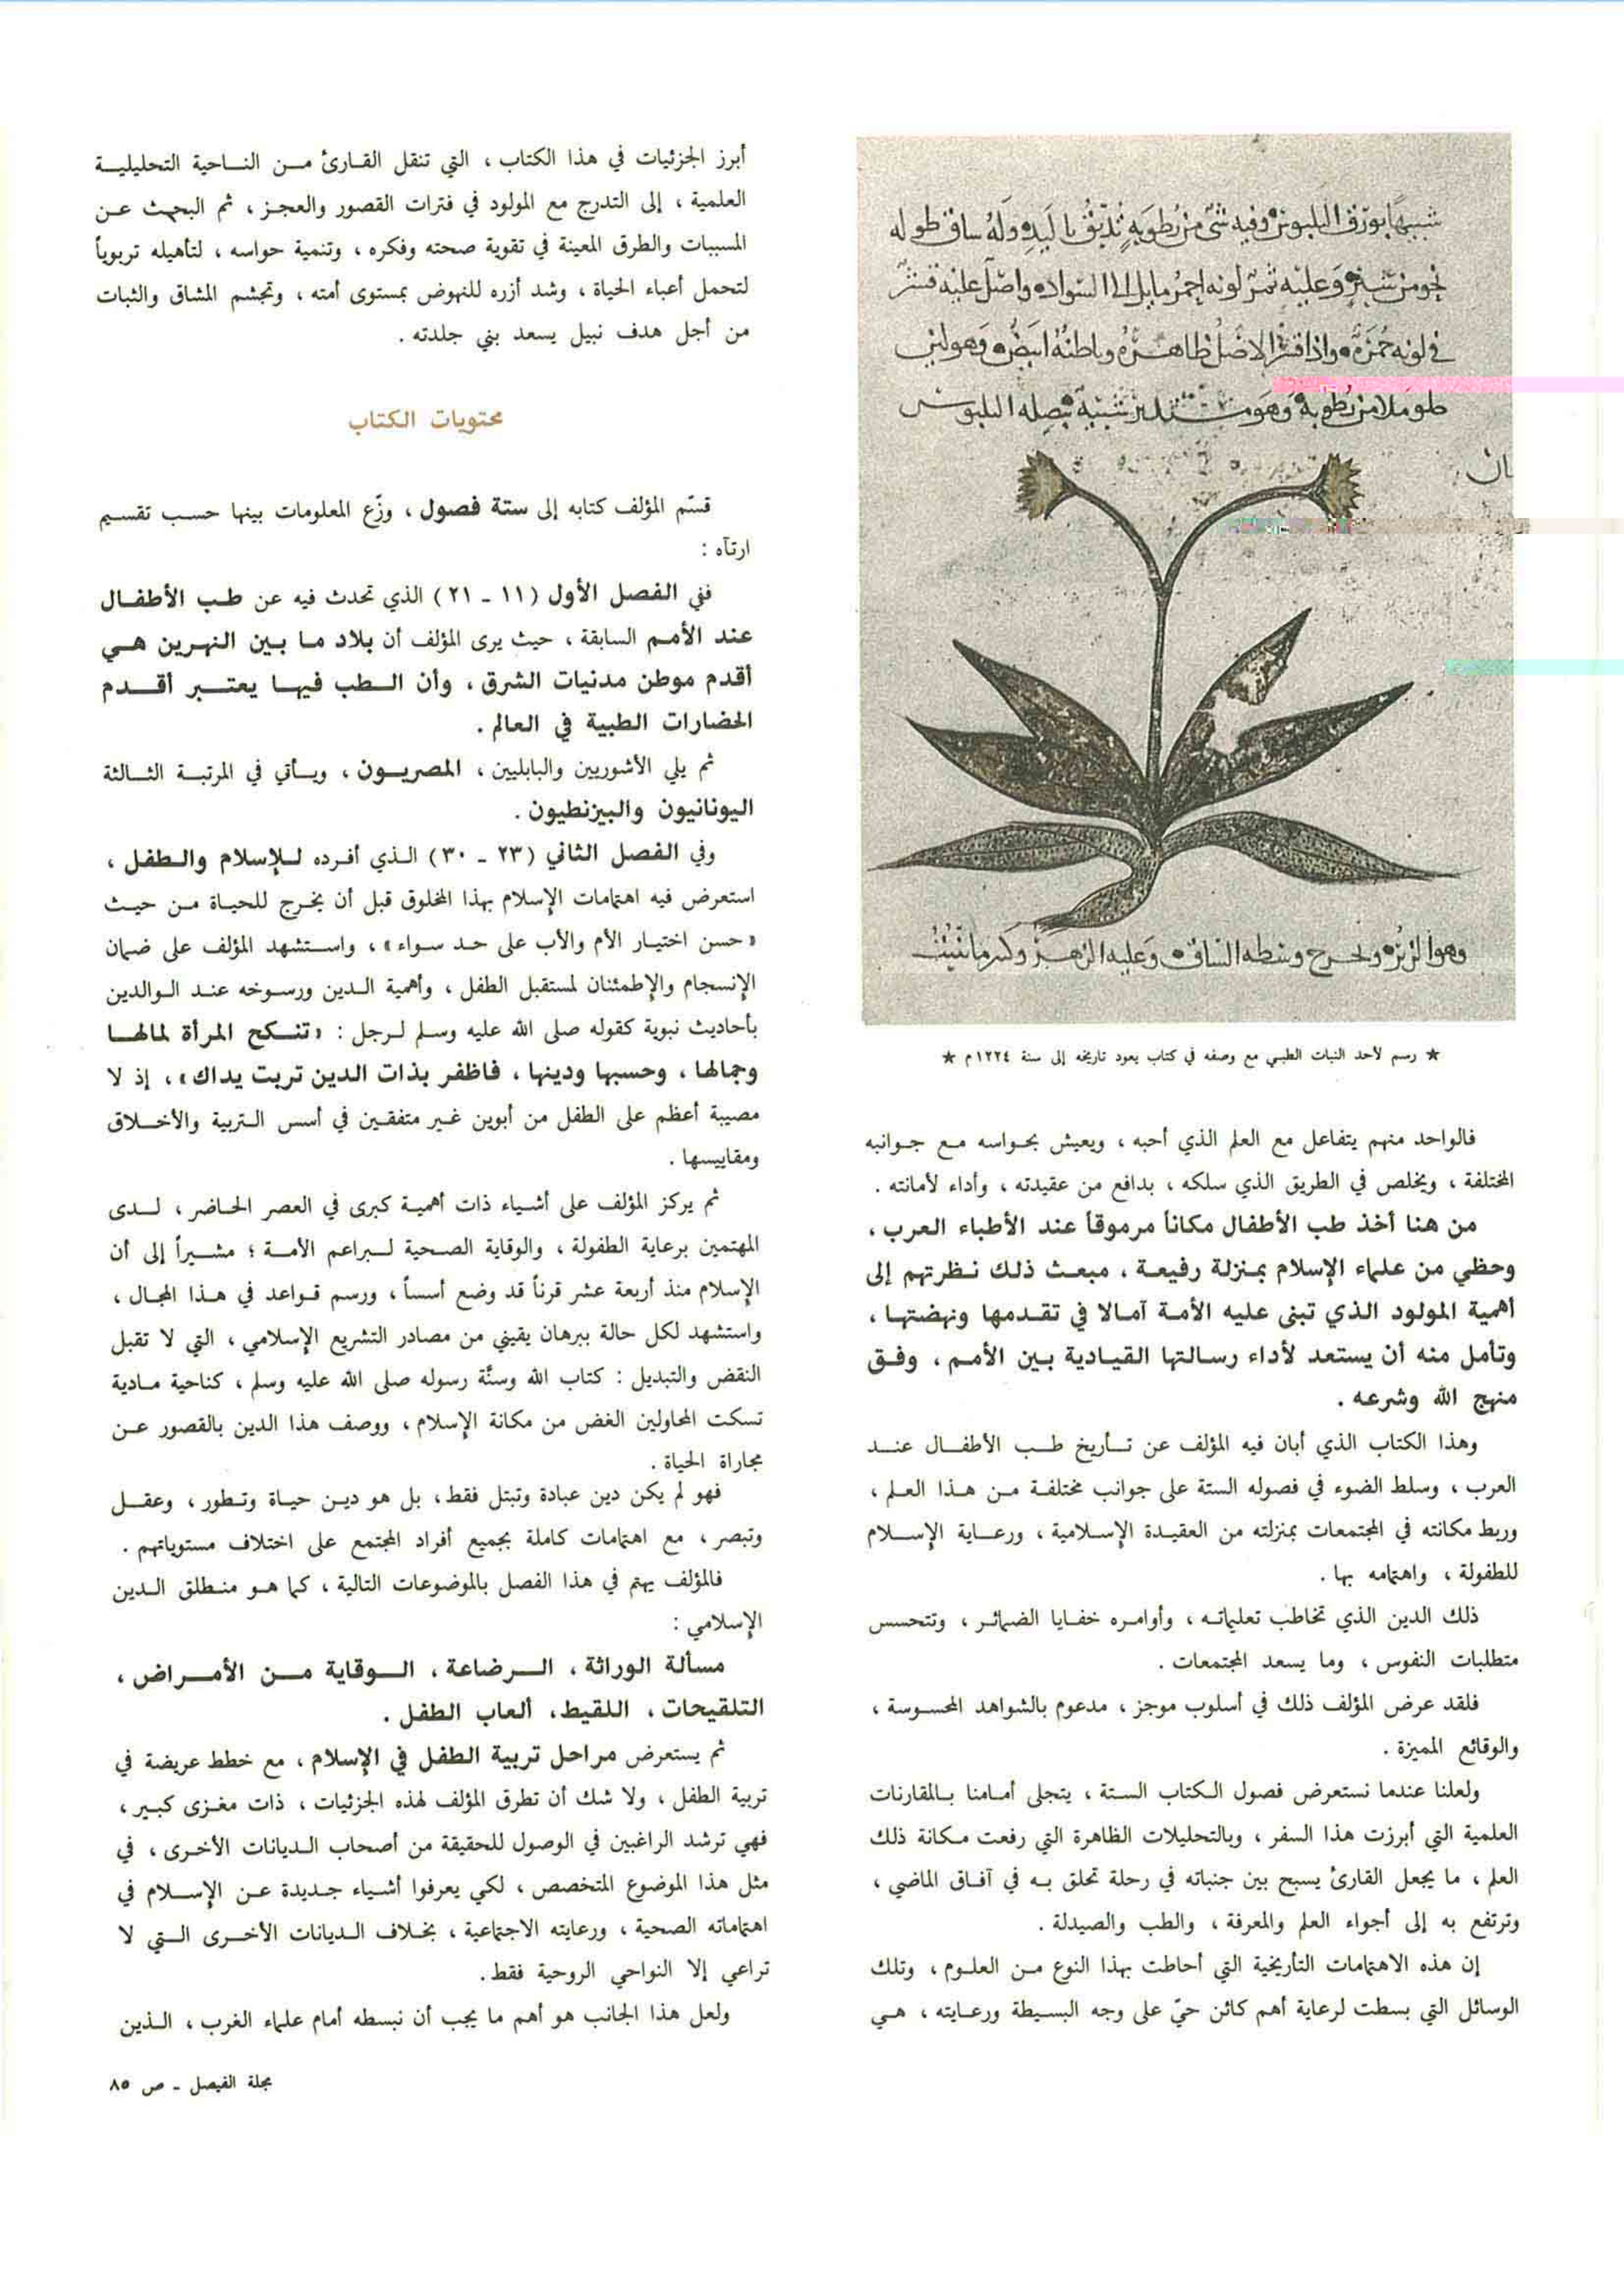 شبيهًا بورق البلبوس وفيه شئ من رطوبةٍ تُدبّقُ باليد وله ساق طوله
نحو من شبر وعليه ثمر لونه احمر مايل الى السواد واصل عليه قشر
في لونه حُمرة واذا قشر الاصل ظاهره وباطنهُ ابيض وهو لين
حلو ملا من رطوبة وهو مستدير شبيه ببصلة البلبوس
ان
وهو الزيزه ويخرج وسطه الساق وعليه الزهر
★ رسم لأحد النبات الطبي مع وصفه في كتاب يعود تاريخه إلى سنة ١٢٢٤م ★
فالواحد منهم يتفاعل مع العلم الذي أحبه ، ويعيش بحواسه مع جوانبه
المختلفة ، ويخلص في الطريق الذي سلكه ، بدافع من عقيدته ، وأداء لأمانته .
من هنا أخذ طب الأطفال مكاناً مرموقاً عند الأطباء العرب ،
وحظي من علماء الإسلام بمنزلة رفيعة ، مبعث ذلك نظرتهم إلى
أهمية المولود الذي تبنى عليه الأمة آمالا في تقدمها ونهضتها ،
وتأمل منه أن يستعد لأداء رسالتها القيادية بين الأمم ، وفق
منهج الله وشرعه .
وهذا الكتاب الذي أبان فيه المؤلف عن تأريخ طب الأطفال عند
العرب ، وسلط الضوء في فصوله الستة على جوانب مختلفة من هذا العلم ،
وربط مكانته في المجتمعات بمنزلته من العقيدة الإسلامية ، ورعاية الإسلام
للطفولة ، واهتمامه بها .
ذلك الدين الذي تخاطب تعليماته ، وأوامره خفايا الضمائر ، وتتحسس
متطلبات النفوس ، وما يسعد المجتمعات .
فلقد عرض المؤلف ذلك في أسلوب موجز ، مدعوم بالشواهد المحسوسة ،
والوقائع المميزة .
ولعلنا عندما نستعرض فصول الكتاب الستة ، يتجلى أمامنا بالمقارنات
العلمية التي أبرزت هذا السفر ، وبالتحليلات الظاهرة التي رفعت مكانة ذلك
العلم ، ما يجعل القارئ يسبح بين جنباته في رحلة تحلق به في آفاق الماضي ،
وترتفع به إلى أجواء العلم والمعرفة ، والطب والصيدلة .
إن هذه الاهتمامات التأريخية التي أحاطت بهذا النوع من العلوم ، وتلك
الوسائل التي بسطت لرعاية أهم كائن حيّ على وجه البسيطة ورعايته ، هي
أبرز الجزئيات في هذا الكتاب ، التي تنقل القارئ من الناحية التحليلية
العلمية ، إلى التدرج مع المولود في فترات القصور والعجز ، ثم البحث عن
المسببات والطرق المعينة في تقوية صحته وفكره ، وتنمية حواسه ، لتأهيله تربوياً
لتحمل أعباء الحياة ، وشد أزره للنهوض بمستوى أمته ، وتجشم المشاق والثبات
من أجل هدف نبيل يسعد بني جلدته .
محتويات الكتاب
قسّم المؤلف كتابه إلى ستة فصول ، وزّع المعلومات بينها حسب تقسيم
ارتآه :
ففي الفصل الأول (١١ - ٢١) الذي تحدث فيه عن طب الأطفال
عند الأمم السابقة ، حيث يرى المؤلف أن بلاد ما بين النهرين هي
أقدم موطن مدنيات الشرق ، وأن الطب فيها يعتبر أقدم
الحضارات الطبية في العالم .
ثم يلي الأشوريين والبابليين ، المصريون ، ويأتي في المرتبة الثالثة
اليونانيون والبيزنطيون .
وفي الفصل الثاني (٢٣ - ٣٠) الذي أفرده للإسلام والطفل ،
استعرض فيه اهتمامات الإسلام بهذا المخلوق قبل أن يخرج للحياة من حيث
«حسن اختيار الأم والأب على حد سواء» ، واستشهد المؤلف على ضمان
الإنسجام والإطمئنان لمستقبل الطفل ، وأهمية الدين ورسوخه عند الوالدين
بأحاديث نبوية كقوله صلى الله عليه وسلم لرجل : «تنكح المرأة لمالها
وجمالها ، وحسبها ودينها ، فاظفر بذات الدين تربت يداك» ، إذ لا
مصيبة أعظم على الطفل من أبوين غير متفقين في أسس التربية والأخلاق
ومقاييسها .
ثم يركز المؤلف على أشياء ذات أهمية كبرى في العصر الحاضر ، لدى
المهتمين برعاية الطفولة ، والوقاية الصحية لبراعم الأمة ؛ مشيراً إلى أن
الإسلام منذ أربعة عشر قرناً قد وضع أسساً ، ورسم قواعد في هذا المجال ،
واستشهد لكل حالة ببرهان يقيني من مصادر التشريع الإسلامي ، التي لا تقبل
النقض والتبديل : كتاب الله وسنَّة رسوله صلى الله عليه وسلم ، كناحية مادية
تسكت المحاولين الغض من مكانة الإسلام ، ووصف هذا الدين بالقصور عن
مجاراة الحياة .
فهو لم يكن دين عبادة وتبتل فقط ، بل هو دين حياة وتطور ، وعقل
وتبصر ، مع اهتمامات كاملة بجميع أفراد المجتمع على اختلاف مستوياتهم .
فالمؤلف يهتم في هذا الفصل بالموضوعات التالية ، كما هو منطلق الدين
الإسلامي :
مسألة الوراثة ، الرضاعة ، الوقاية من الأمراض ،
التلقيحات ، اللقيط ، ألعاب الطفل .
ثم يستعرض مراحل تربية الطفل في الإسلام ، مع خطط عريضة في
تربية الطفل ، ولا شك أن تطرق المؤلف لهذه الجزئيات ، ذات مغزى كبير ،
فهي ترشد الراغبين في الوصول للحقيقة من أصحاب الديانات الأخرى ، في
مثل هذا الموضوع المتخصص ، لكي يعرفوا أشياء جديدة عن الإسلام في
اهتماماته الصحية ، ورعايته الاجتماعية ، بخلاف الديانات الأخرى التي لا
تراعي إلا النواحي الروحية فقط .
ولعل هذا الجانب هو أهم ما يجب أن نبسطه أمام علماء الغرب ، الذين
مجلة الفيصل - ص ٨٥